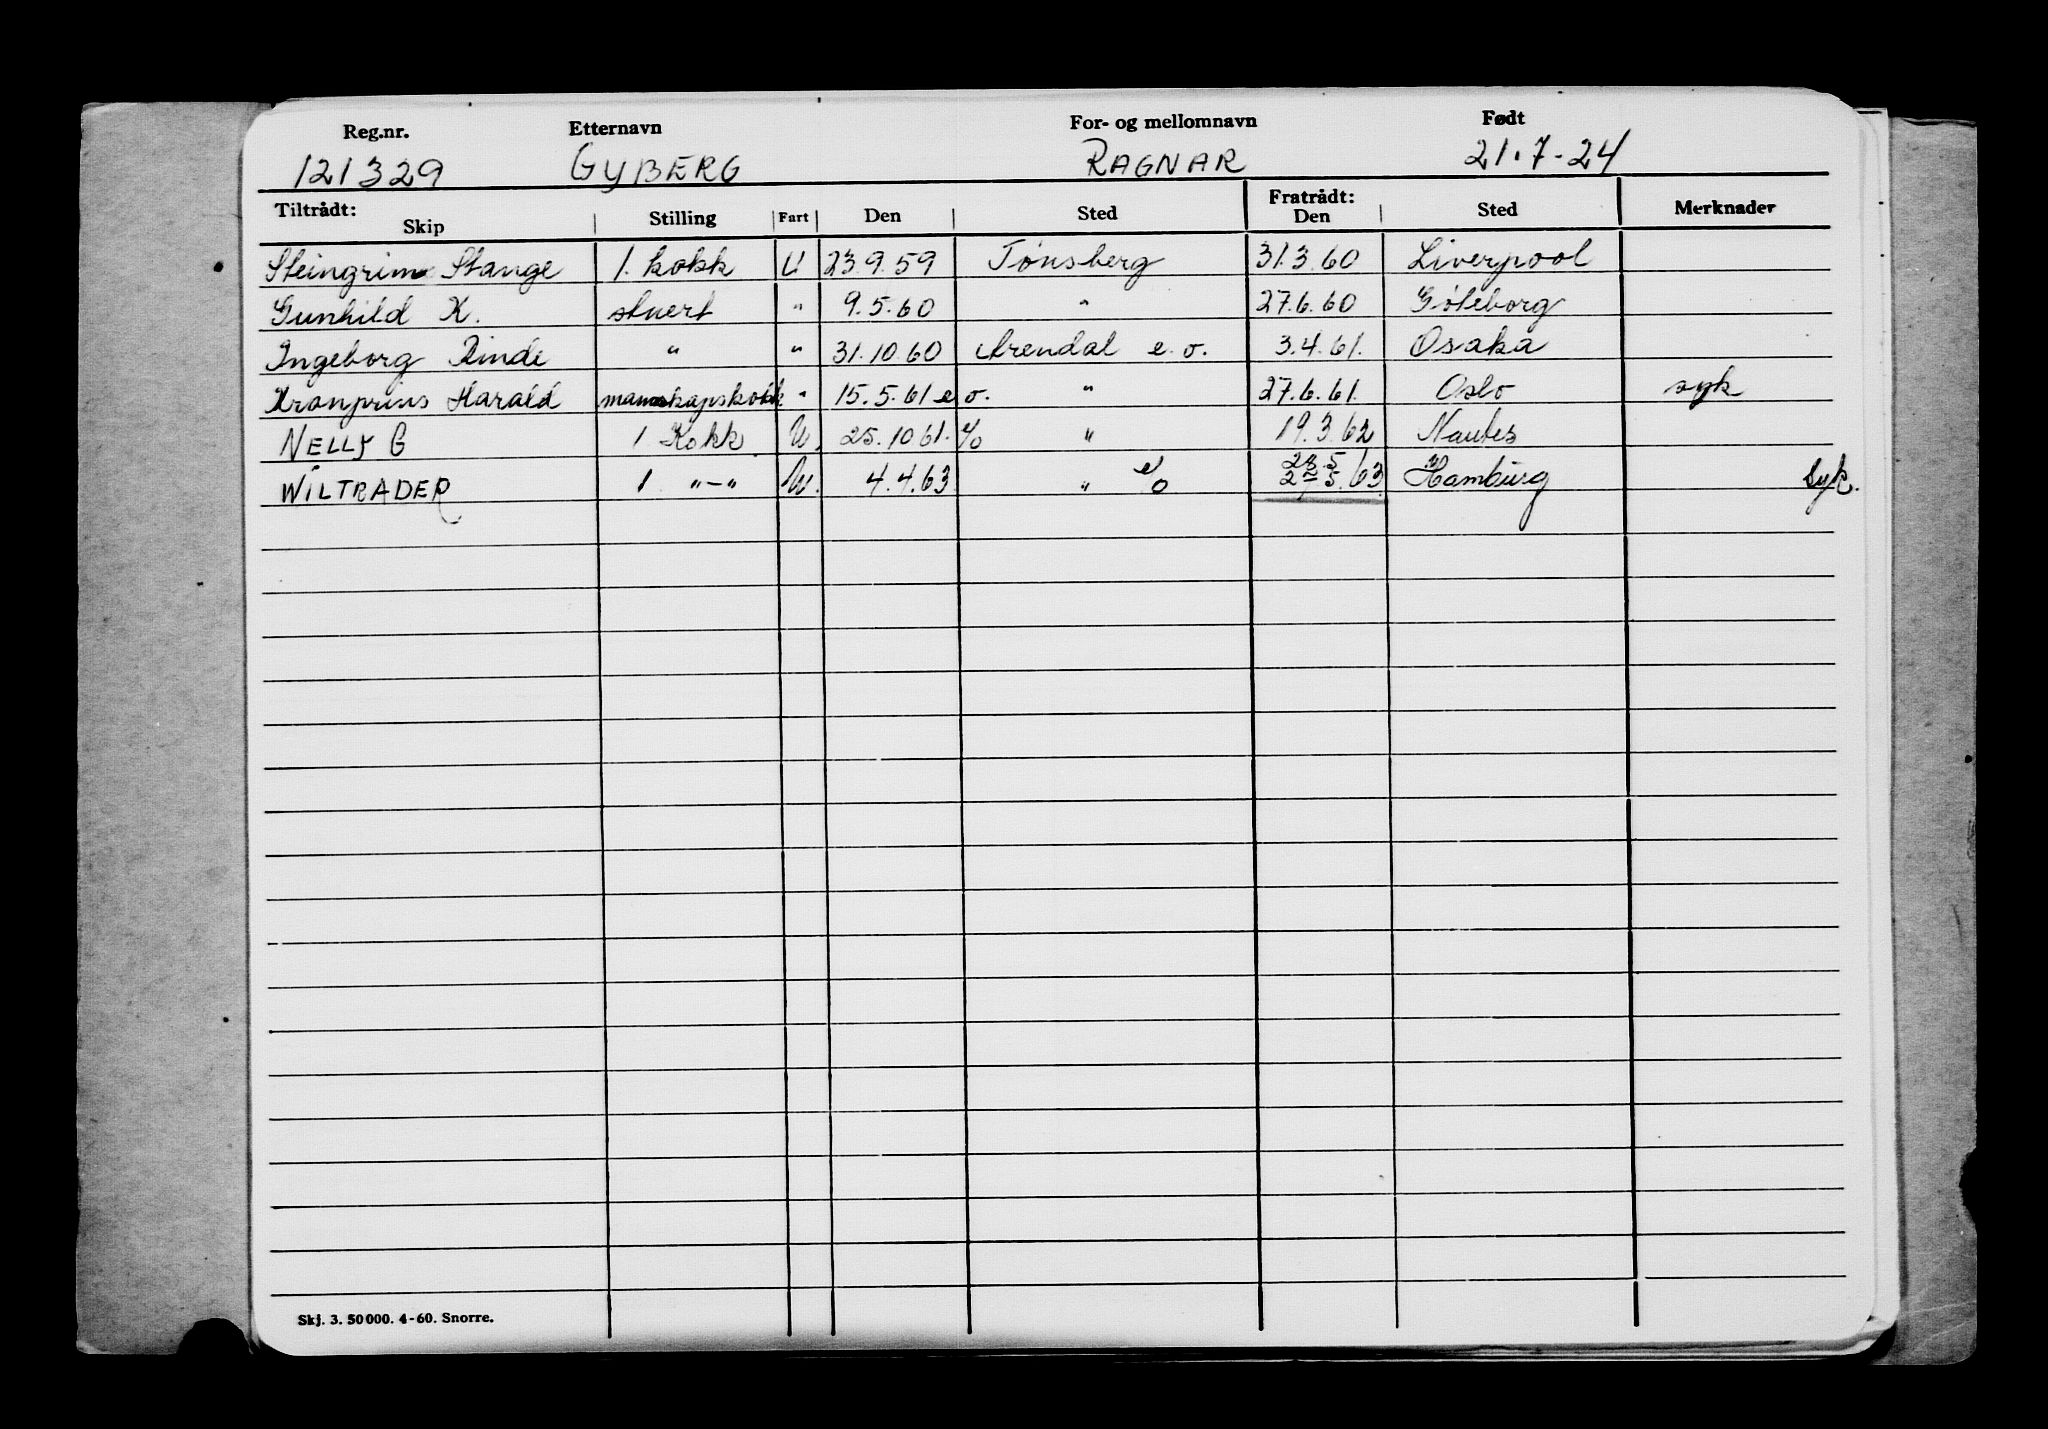 Reg.nr. Etternavn For- og mellomnavn Født
121329 GYBERG RAGNAR 21.7-24
Tiltrådt: Fratrådt:
Skip Stilling Fart Den Sted Den Sted Merknader
Steingrim Stange 1. kokk U 23.9.59 Tønsberg 31.3.60 Liverpool
Gunhild K. stuert " 9.5.60 " 27.6.60 Göteborg
Ingeborg Rinde " " 31.10.60 Arendal e.o. 3.4.61. Osaka
Kronprins Harald mannskapskokk " 15.5.61 e o. " 27.6.61. Oslo syk
NELLY G 1 Kokk U. 25.10 61. e/o " 19.3.62 Nantes
WILTRADER 1 "-" U. 4.4.63 " e/o .63 Hamburg Syk.
Skj. 3. 50 000. 4-60. Snorre.